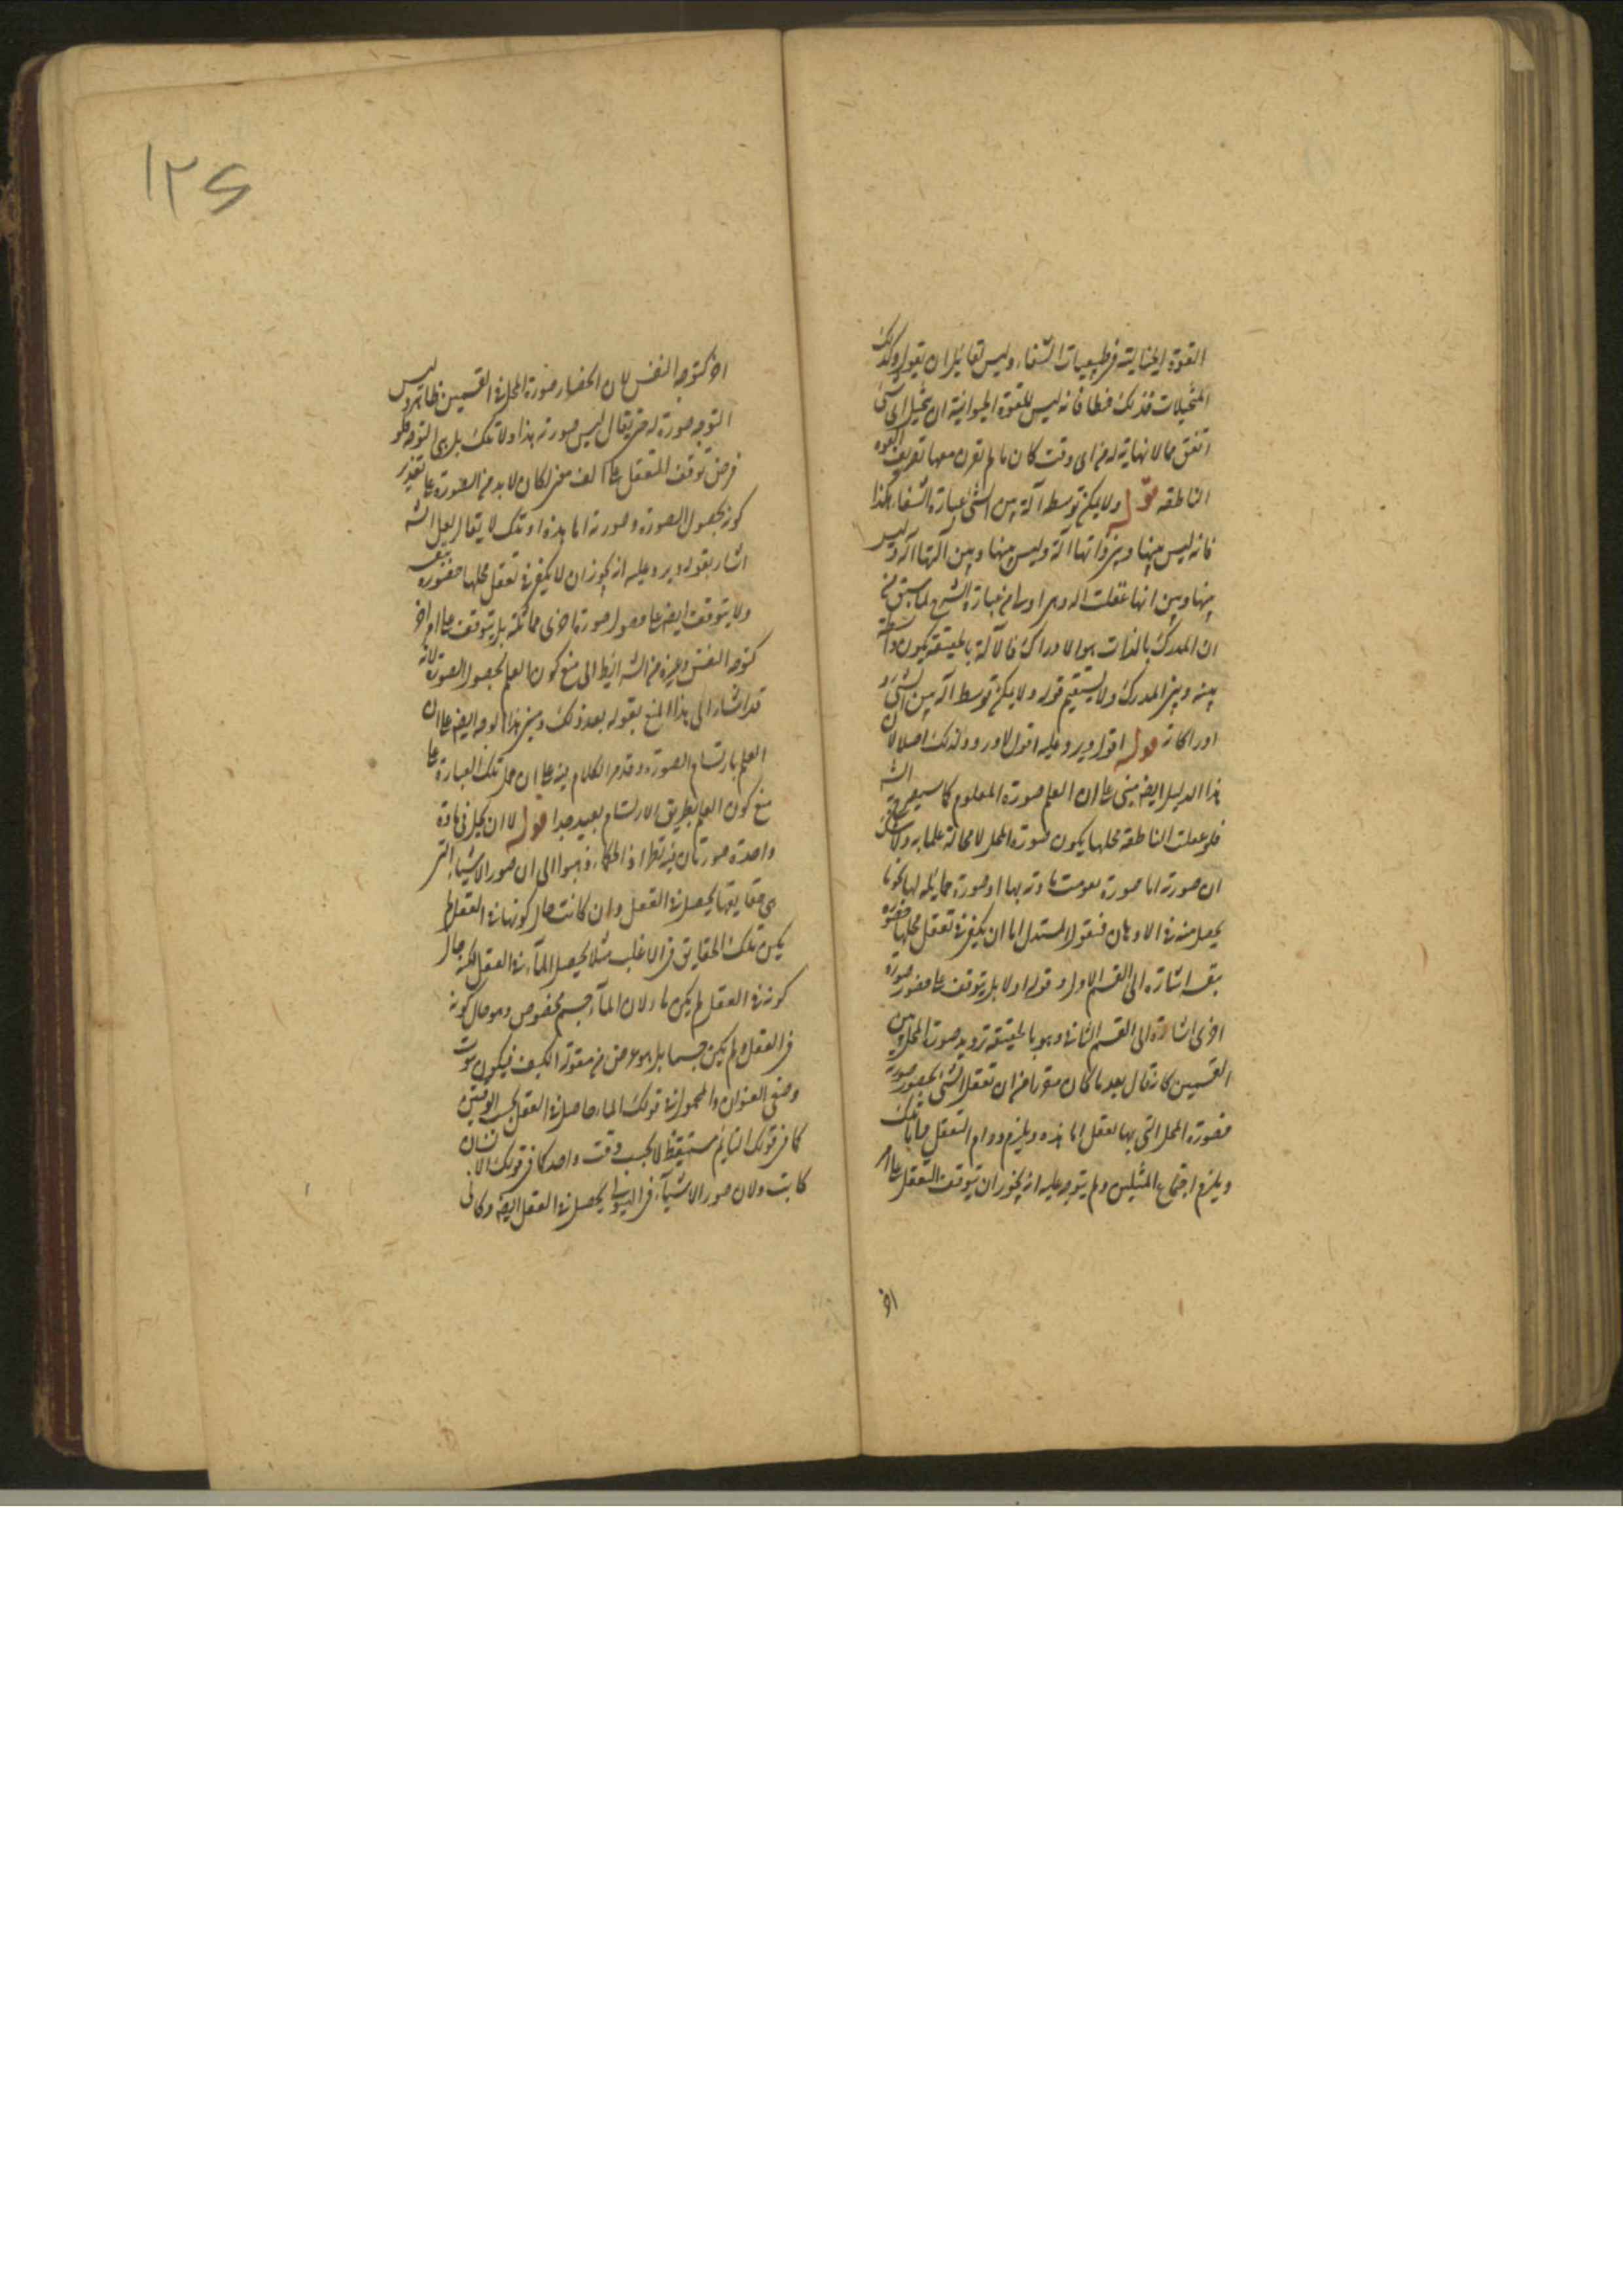 القوة الخيالية فى طبيعيات الشفاء وليس لقائل ان يقول وكذلك
المتخيلات فذلك خطا فانه ليس للقوة الحيوانية ان يتخيل اى شئ
اتفق مما لا نهاية له فى اى وقت كان ما لم يقرن معها تعريف القوه
الناطقه قوله ولا يمكن توسط آلة بين الشئ عبارة الشفاء هكذا
فانه ليس بينها وبين ذاتها آلة وليس بينها وبين آلتها آلة وليس
بينها وبين انها عقلت آلة وهى اوسا من عبارة الشرح لما سبق من
ان المدرك بالذات هو الادراك فالآلة بالحقيقة يكون واسطة
بينه وبين المدرك ولا يستقيم قوله ولا يمكن توسط آلة بين الشئ و
ادراكاته قوله اقول ويرد عليه اقول لا ورود لذلك اصلا لان
هذا الدليل ايضا مبنى على ان العلم صورة المعلوم كما سيصرح به الش
فلو عقلت الناطقة محلها يكون صورة المحل لا محالة علما به ولا شك
ان صورته اما صورة تقومت مادته بها او صورة مماثله لها نحو ما
يحصل منه فى الاذهان فنقول المستدل اما ان يكفى فى تعقل محلها حضوره
بنفسه اشارة الى القسم الاول وقوله اولا بل يتوقف على حضور صورة
اخرى اشارة الى القسم الثانى وهو بالحقيقة ترديد صورة المحل بين
القسمين كانه قال بعد ما كان مقررا من ان تعقل الشئ بحضور صورته
فصورة المحل التى بها تعقل اما هذه ويلزم دوام التعقل واما تلك
ويلزم اجتماع المثلين ولم يتوجه عليه انه يجوز ان يتوقف التعقل على امر
اخر
١٢٤
اخر كتوجه النفس لان انحصار صورة المحل فى القسمين ظاهر وليس
التوجه صورة له حتى يقال ليس صورته هذا ولا تلك بل هى التوجه فلو
فرض توقف التعقل على الف امر لكان لا بد من الصورة على تقدير
كونه بحصول الصورة وصورته اما هذه او تلك لا يقال لعل الش
اشار بقوله ويرد عليه انه يجوز ان لا يكفى فى تعقل محلها حضوره بنفسه
ولا يتوقف ايضا على حصول صورة اخرى مماثلة بل يتوقف على امر اخر
كتوجه النفس وغيره من الشرائط الى منع كون العلم بحصول الصورة لانه
قد اشار الى هذا المنع بقوله بعد ذلك ومبنى هذا الوجه ايضا على ان
العلم بارتسام الصورة وقد مر الكلام فيه على ان حمل تلك العبارة على
منع كون العلم بطريق الارتسام بعيد جدا قوله لا ان يحل فى مادة
واحدة صورتان فيه نظر اذ الحكماء ذهبوا الى ان صور الاشياء التى
هى حقايقها يحصل فى العقل وان كانت حال كونها فى العقل لم
يكن تلك الحقايق فى الاغلب مثلا يحصل الماء فى العقل لكنه حال
كونه فى العقل لم يكن ماء لان الماء جسم مخصوص وهو حال كونه
فى العقل لم يكن جسما بل هو عرض من مقولة الكيف فيكون ثبوت
وصفى العنوان والمحمول فى قولك الماء حاصل فى العقل بحسب الوقتين
كما فى قولك النايم مستيقظ لا بحسب وقت واحد كما فى قولك الانسان
كاتب ولان صور الاشياء فى الهيولى يحصل فى العقل ايضا وكما فى